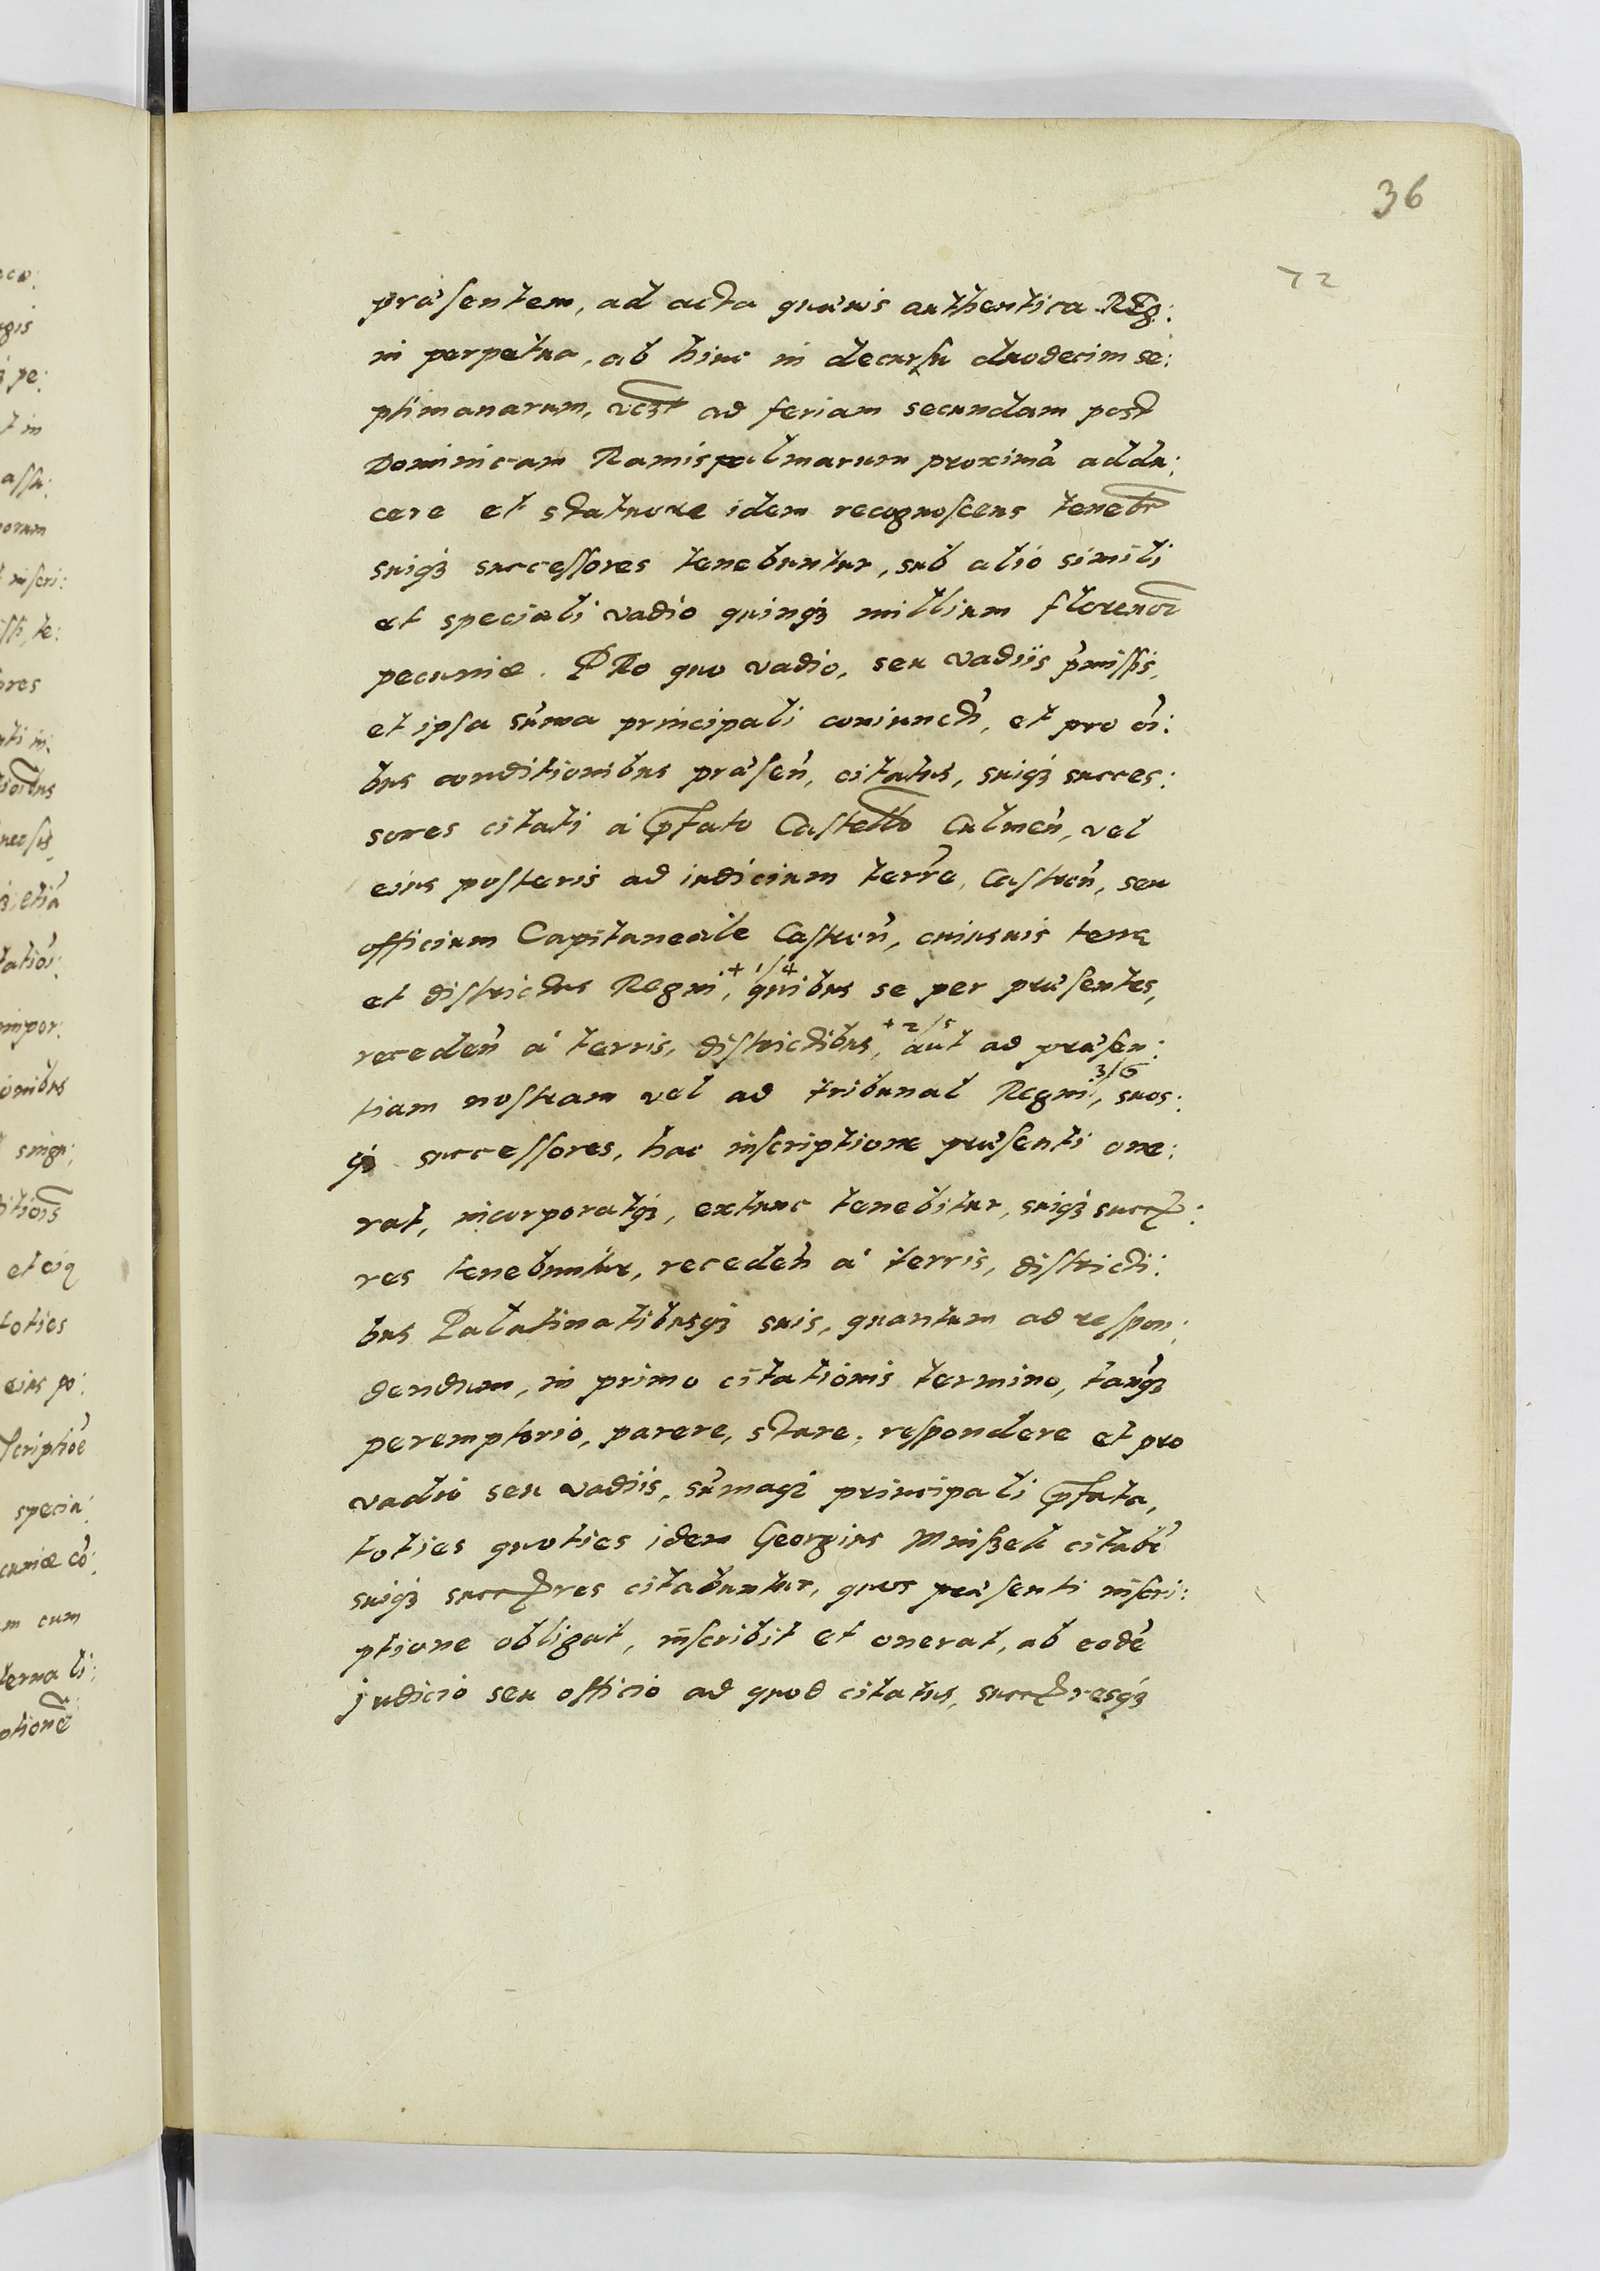 36
72
præsentem, ad acta quævis authentica Reg:
ni perpetua, ab hinc in decursu duodecim se:
ptimanarum, vcꝫt ad feriam secundam post
Dominicam Ramispalmarum proximã addu:
cere et statuere idem recognoscens tenebr
suiqꝫ successores tenebuntur, sub alio simili
et speciali vadio quinqꝫ millium floreno℞
pecuniæ. PRo quo vadio, seu vadiis p̃missis,
et ipsa sũma principali coniunctĩ, et pro oĩ:
bus conditionibus præseñ, citatus, suiqꝫ succes:
sores citati à p̃fato Castello Culmeñ, vel
eius posteris ad iudicium terre, Castreñ, seu
officium Capitaneale Castreñ, cuiusuis terræ
et districtus Regni, + 1/4 quibus se per præsentes,
recedeñ à terris, districtibus, + 2/5 aut ad præsen:
tiam nostram vel ad tribunal Regni 3/6, suos:
qꝫ successores, hac inscriptione præsenti one:
rat, incorporatqꝫ, extunc tenebitur, suiqꝫ succꝭo:
res tenebuntur, recedeñ à terris, districti:
bus Palatinatibusqꝫ suis, quantum ad respon:
dendum, in primo citationis termino, tanqꝫ
peremptorio, parere, stare, respondere et pro
vadio seu vadiis, sũmaqꝫ principali p̃fata,
toties quoties idem Georgius Mniszek citabr
suiqꝫ succꝭores citabuntur, quos præsenti inscri:
ptione obligat, inscribit et onerat, ab eodẽ
judicio seu officio ad quod citatus, succꝭoresqꝫ